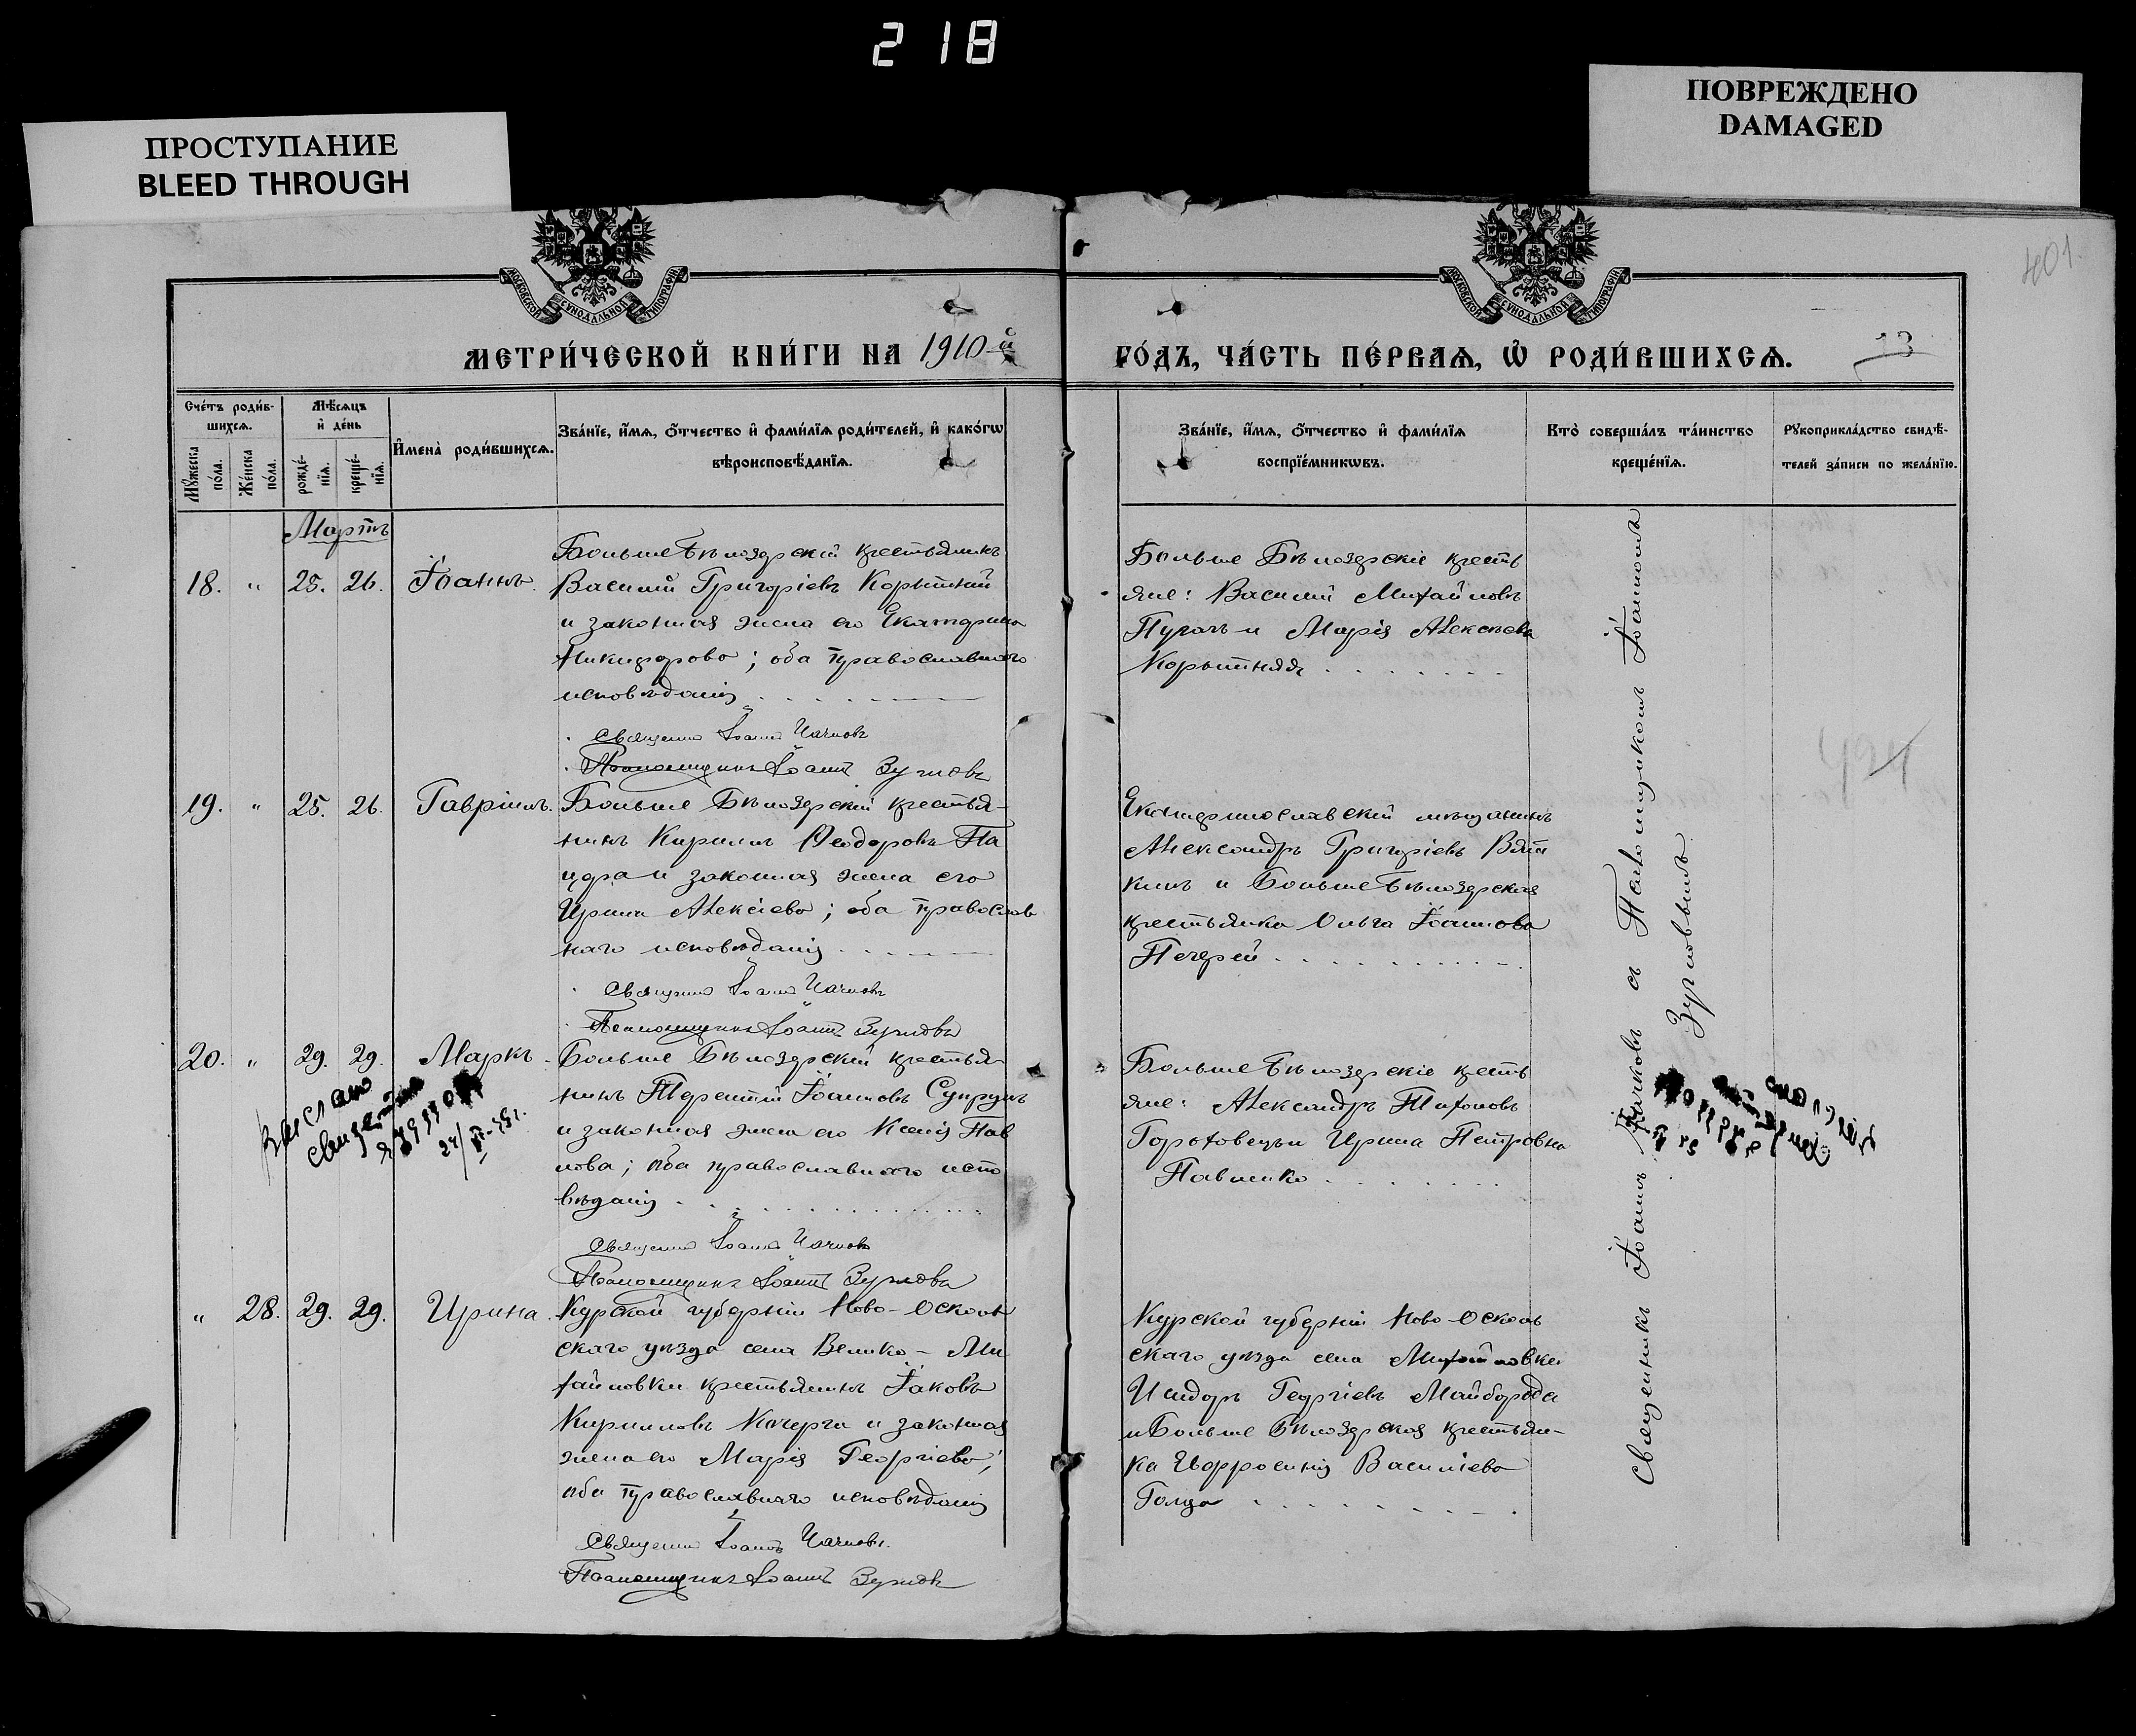 218
ПРОСТУПАНИЕ
BLEED THROUGH
ПОВРЕЖДЕНО
DAMAGED
401.
МОСКОВСКОЙ СУНОДАЛЬНОЙ ТИПОГРАФІИ
МОСКОВСКОЙ СУНОДАЛЬНОЙ ТИПОГРАФІИ
МЕТРИ́ЧЕСКОЙ КНИ́ГИ НА 1910-й
ГО́ДЪ, ЧА́СТЬ ПЕ́РВАѦ, Ѿ РОДИ́ВШИХСѦ.
Сче́тъ роди́в-
шихсѧ.
Мꙋ́жеска по́ла.
Же́нска по́ла.
Мѣ́сѧцъ
и҆ де́нь
рожде́-
нїѧ.
креще́-
нїѧ.
И҆мена̀ роди́вшихсѧ.
Зва́нїе, и҆́мѧ, ѻ҆́тчество и҆ фами́лїѧ роди́телей, и҆ како́гѡ
вѣроисповѣ́данїѧ.
Зва́нїе, и҆́мѧ, ѻ҆́тчество и҆ фами́лїѧ
воспрїе́мникѡвъ.
Кто̀ соверша́лъ та́инство
креще́нїѧ.
Рꙋкоприкла́дство свидѣ́-
телей за́писи по жела́нїю.
Мартъ
18. " 25. 26. Іоаннъ.
Больше Бѣлозерскій крестьянинъ
Василій Григоріевъ Корытній
и законная жена его Екатерина
Никифорова; оба православнаго
исповѣданія
Священно Іоаннъ Чачковъ
Псаломщикъ Іоаннъ Зугловъ
Больше Бѣлозерскіе кресть
яне: Василій Михайловъ
Пугачъ и Марія Алексѣева
Корытняя
19. " 25. 26. Гавріилъ.
Больше Бѣлозерскій крестья-
нинъ Кириллъ Ѳеодоровъ
и законная жена его
Ирина Алексіева; оба православ
наго исповѣданія
Священно Іоаннъ Чачковъ
Псаломщикъ Іоаннъ Зугловъ
Екатеринославскій мѣщанинъ
Александръ Григоріевъ
и Больше Бѣлозерская
крестьянка Ольга Іоаннова
Печерей
20. " 29. 29. Маркъ.
Больше Бѣлозерскій крестья-
нинъ Терентій Іоанновъ Супрунъ
и законная жена его Ксенія Пав
лова; оба православнаго испо
вѣданія
Священно Іоаннъ Чачковъ
Псаломщикъ Іоаннъ Зугловъ
Больше Бѣлозерскіе кресть
яне: Александръ Тихоновъ
и Ирина Петровна
Павленко
выслано
" 28. 29. 29. Ирина.
Курской губерніи Ново-Осколь
скаго уѣзда села Велико-Ми
хайловки крестьянинъ Іаковъ
Кирилловъ Кочерга и законная
жена его Марія Георгіева;
оба православнаго исповѣданія
Священно Іоаннъ Чачковъ
Псаломщикъ Іоаннъ Зугловъ
Курской губерніи Ново-Осколь
скаго уѣзда села Михайловки
Исидоръ Георгіевъ Майборода
и Больше Бѣлозерская крестьян-
ка Евфросинія Васильева
Священникъ Іоаннъ Чачковъ съ Псаломщикомъ Іоанномъ
Зугловымъ.